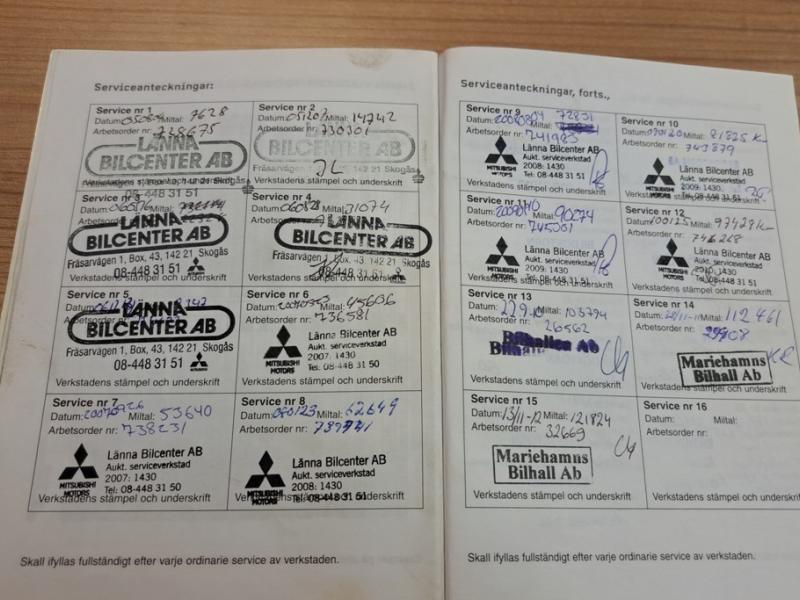 Serviceanteckningar:
Service nr 1
Datum: Miltal: 7628
Arbetsorder nr: 728675
LÄNNA
BILCENTER AB
08-448 31 51
Verkstadens stämpel och underskrift
Service nr 2
Datum: Miltal: 14742
Arbetsorder nr: 730301
LÄNNA
BILCENTER AB
142 21 Skogås
JL
Verkstadens stämpel och underskrift
Service nr 3
Datum:
LÄNNA
BILCENTER AB
Fräsarvägen 1, Box, 43, 142 21 Skogås
08-448 31 51
Verkstadens stämpel och underskrift
Service nr 4
Datum: 060828 31074
LÄNNA
BILCENTER AB
Fräsarvägen 1, Box, 43, 142 21 Skogås
08-448 31 51
Verkstadens stämpel och underskrift
Service nr 5
Datum:
LÄNNA
BILCENTER AB
Fräsarvägen 1, Box, 43, 142 21 Skogås
08-448 31 51
Verkstadens stämpel och underskrift
Service nr 6
Datum: Miltal: 45606
Arbetsorder nr: 736581
MITSUBISHI
MOTORS
Länna Bilcenter AB
Aukt. serviceverkstad
2007: 1430
Tel: 08-448 31 50
Verkstadens stämpel och underskrift
Service nr 7
Datum: 20070926 Miltal: 53640
Arbetsorder nr: 738231
MITSUBISHI
MOTORS
Länna Bilcenter AB
Aukt. serviceverkstad
2007: 1430
Tel: 08-448 31 50
Verkstadens stämpel och underskrift
Service nr 8
Datum: 080123 Miltal: 62649
Arbetsorder nr:
MITSUBISHI
MOTORS
Länna Bilcenter AB
Aukt. serviceverkstad
2008: 1430
Tel: 08-448 31 50
Verkstadens stämpel och underskrift
Skall ifyllas fullständigt efter varje ordinarie service av verkstaden.
Serviceanteckningar, forts.,
Service nr 9
Datum: Miltal: 72831
Arbetsorder nr: 741983
MITSUBISHI
MOTORS
Länna Bilcenter AB
Aukt. serviceverkstad
2008: 1430
Tel: 08-448 31 50
Verkstadens stämpel och underskrift
Service nr 10
Datum: Miltal: 81825 K
Arbetsorder nr: 743879
MITSUBISHI
MOTORS
Länna Bilcenter AB
Aukt. serviceverkstad
2008: 1430
Verkstadens stämpel och underskrift
Service nr 11
Datum: Miltal: 90274
Arbetsorder nr: 745001
MITSUBISHI
MOTORS
Länna Bilcenter AB
Aukt. serviceverkstad
2009: 1430
Tel: 08-448 31 50
Verkstadens stämpel och underskrift
Service nr 12
Datum: 100125 Miltal: 97428 K
Arbetsorder nr: 746268
MITSUBISHI
MOTORS
Länna Bilcenter AB
Aukt. serviceverkstad
Tel: 08-448 31 50
Verkstadens stämpel och underskrift
Service nr 13
Datum: Miltal: 103794
Arbetsorder nr: 26562
Bilhallen Ab
Verkstadens stämpel och underskrift
Service nr 14
Datum: Miltal: 112 461
Arbetsorder nr:
Mariehamns
Bilhall Ab
Verkstadens stämpel och underskrift
Service nr 15
Datum: 13/11-12 Miltal: 121824
Arbetsorder nr: 32669
Mariehamns
Bilhall Ab
Verkstadens stämpel och underskrift
Service nr 16
Datum: Miltal:
Arbetsorder nr:
Verkstadens stämpel och underskrift
Skall ifyllas fullständigt efter varje ordinarie service av verkstaden.